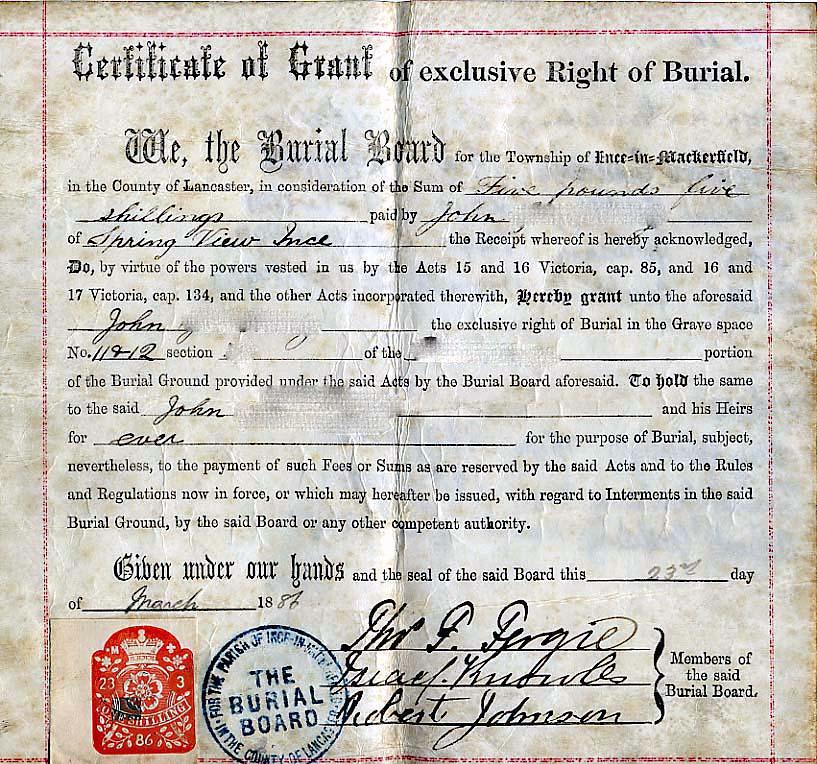 Certificate of Grant of exclusive Right of Burial.
We, the Burial Board for the Township of Ince-in-Mackerfield,
in the County of Lancaster, in consideration of the Sum of Five pounds five
shillings paid by John
of Spring View Ince the Receipt whereof is hereby acknowledged,
Do, by virtue of the powers vested in us by the Acts 15 and 16 Victoria, cap. 85, and 16 and
17 Victoria, cap. 134, and the other Acts incorporated therewith, Hereby grant unto the aforesaid
John the exclusive right of Burial in the Grave space
No. 11&12 section of the portion
of the Burial Ground provided under the said Acts by the Burial Board aforesaid. To hold the same
to the said John and his Heirs
for ever for the purpose of Burial, subject,
nevertheless, to the payment of such Fees or Sums as are reserved by the said Acts and to the Rules
and Regulations now in force, or which may hereafter be issued, with regard to Interments in the said
Burial Ground, by the said Board or any other competent authority.
Given under our hands and the seal of the said Board this 23rd day
of March 1886
Thos F. Fergie
Isaac Knowles
Robert Johnson
Members of
the said
Burial Board.
M
23 3
ONE SHILLING
86
FOR THE PARISH OF INCE-IN-
THE
BURIAL
BOARD
IN THE COUNTY OF LANCASTER